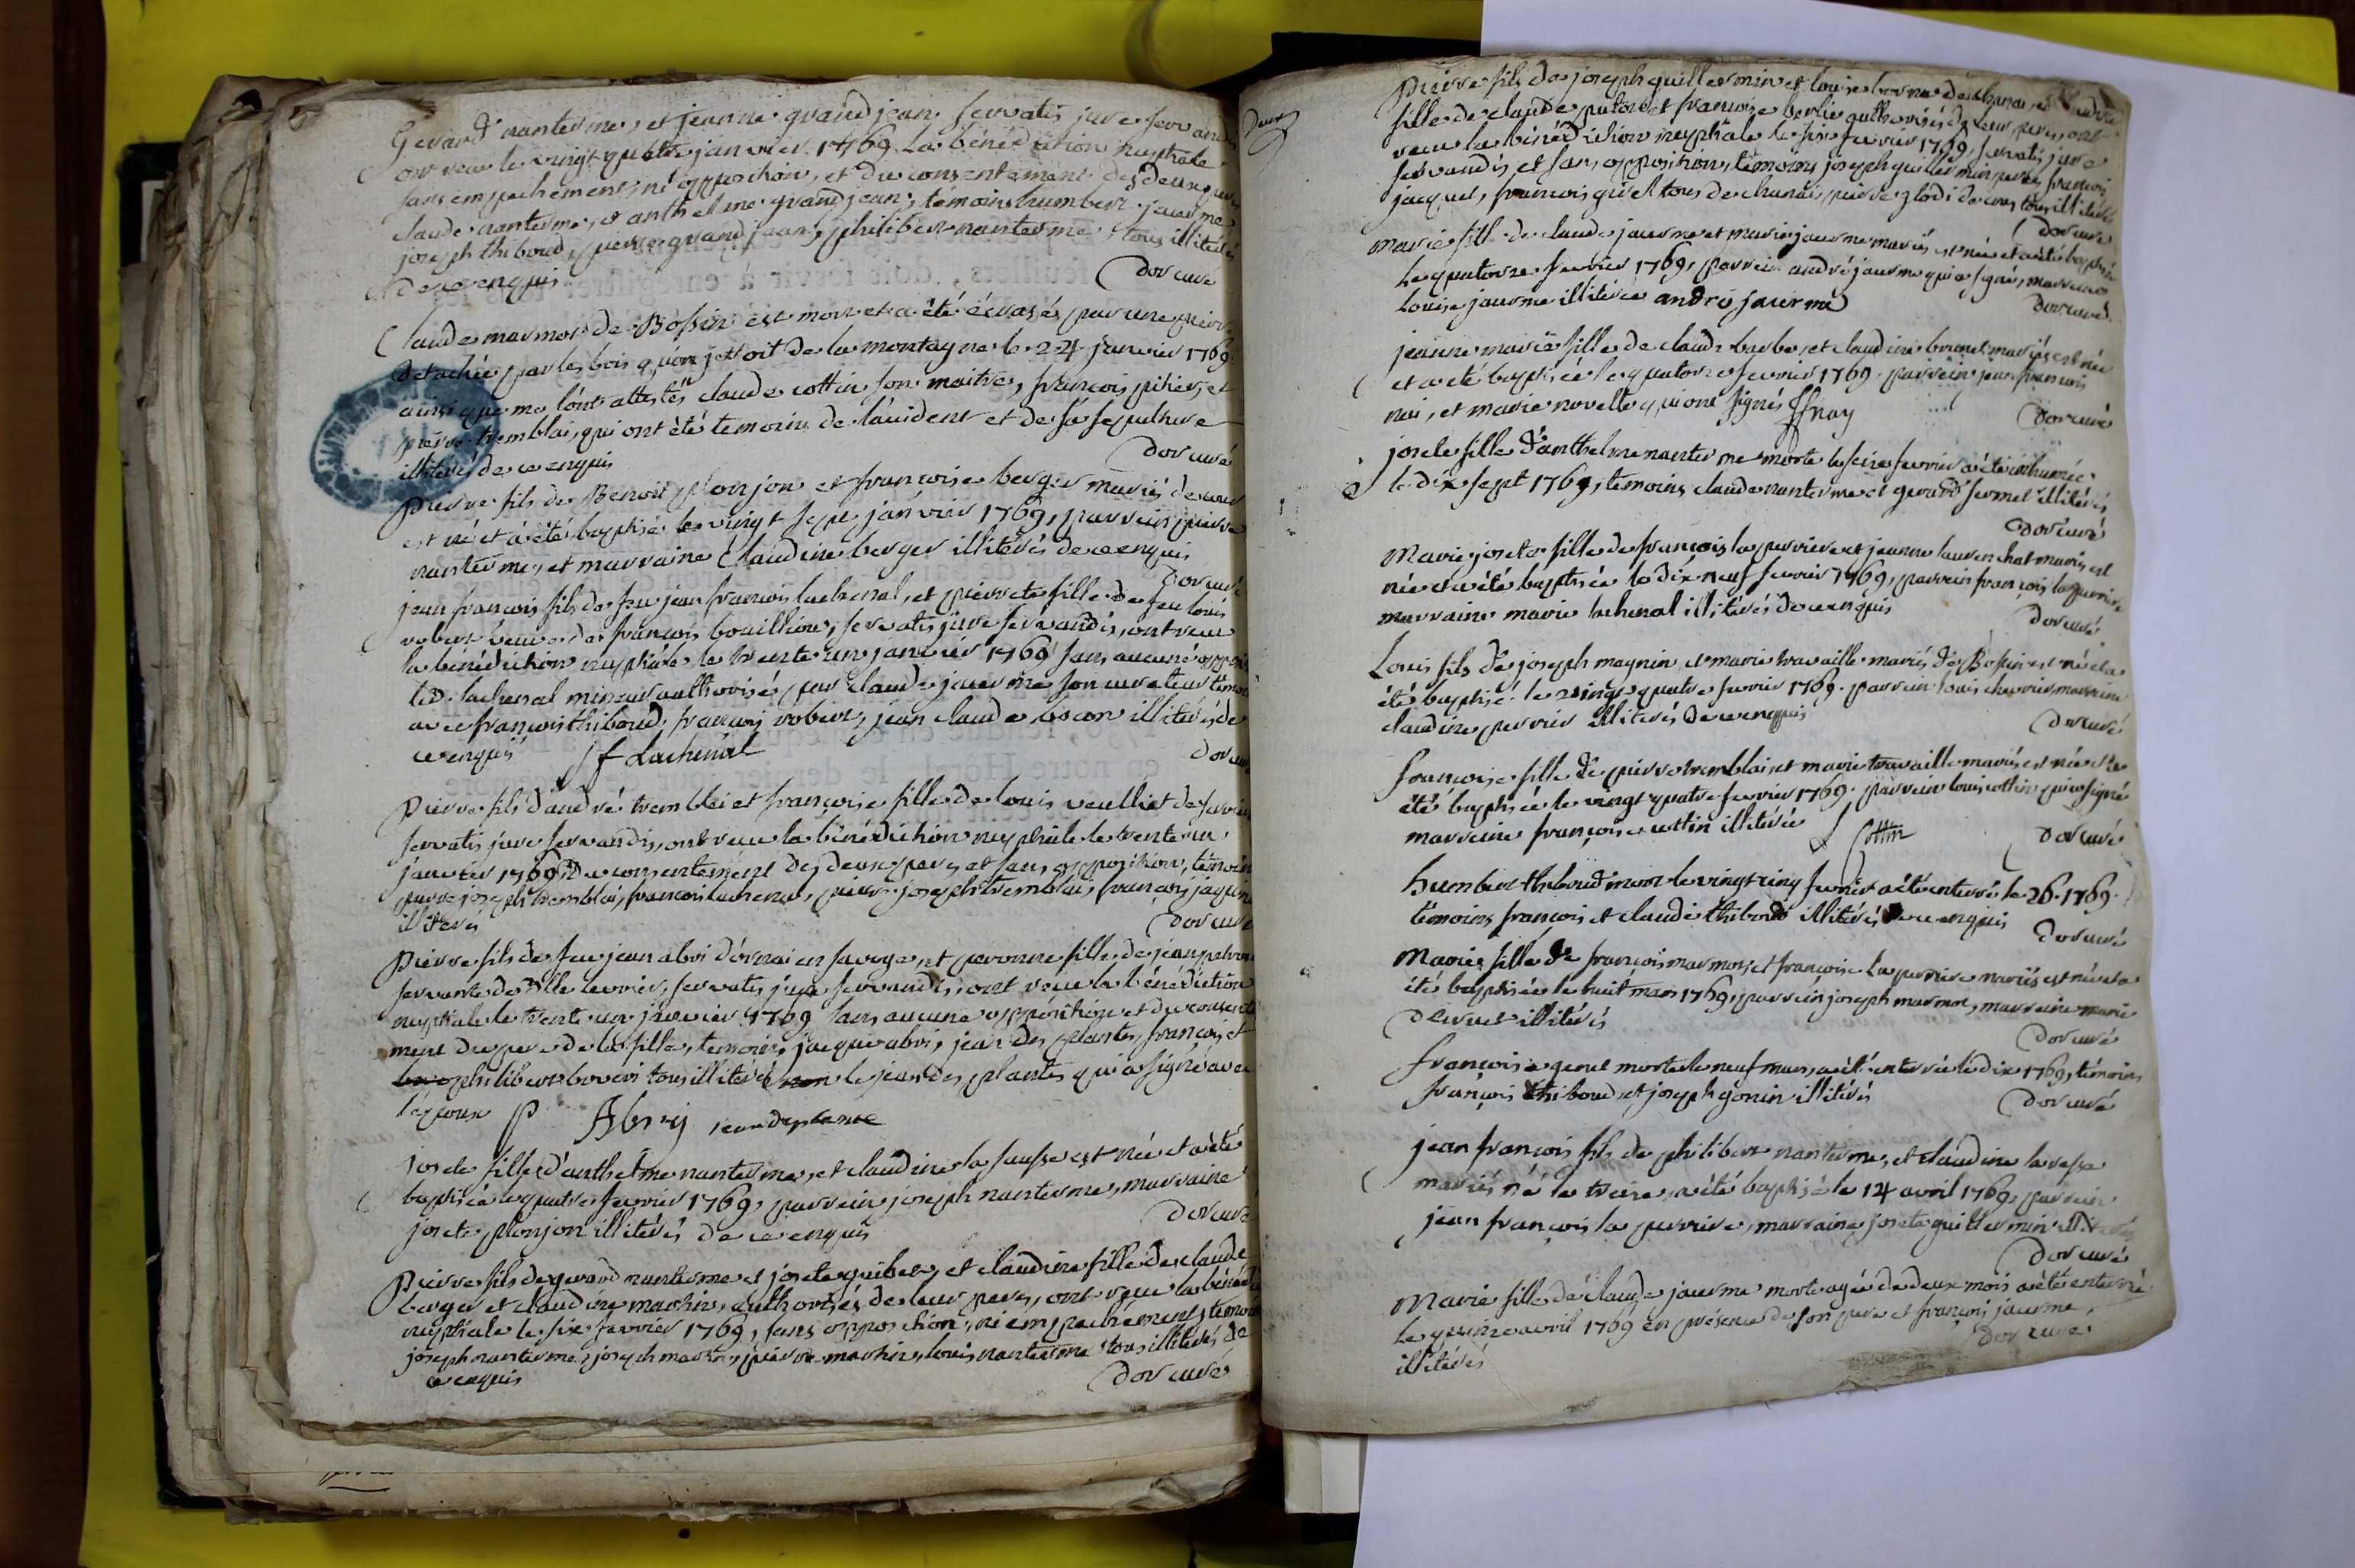 Gerard nanterme, et jeanne grandjean servatis jure servandis
ont recu le vingt quatre janvier 1769 la bénédiction nuptiale
sans empechement, ni opposition, et du consentement des deux peres
claude nanterme, et anthelme grandjean, témoins humbert jaurme
joseph thiboud, pierre grandjean, philibert nanterme, tous illiterés
de ce enquis
Dor curé
Claude marmot de Bossin est mort et a été écrasé par une pierre
détachée par les bois qu'on jettoit de la montagne le 24 janvier 1769
ainsi que me l'ont attestés claude cottin son maitre, françois pitier, et
pierre tremblai, qui ont été temoins de l'accident et de sa sepulture
illiterés de ce enquis
Dor curé
Pierre fils de Benoit plonjon et françoise berger mariés de
est né et a été baptisé le vingt sept janvier 1769, parrein pierre
nanterme, et marraine Claudine berger illiterés de ce enquis
Dor curé
jean françois fils de feu jean françois lachenal, et pierrete fille de feu louis
robert veuve de françois bouillion, servatis jure servandis, ont recu
la bénédiction nuptiale le trente un janvier 1769 sans aucune
led. lachenal mineur authorisé par claude jaurme son curateur
avec françois thiboud, françois robert, jean claude illiterés de
ce enquis J f Lachenal
Dor curé
Pierre fils d'andré tremblai et françoise fille de louis veulliet de
servatis jure servandis, ont recu la bénédiction nuptiale le trente un
janvier 1769, du consentement des deux peres et sans opposition, témoins
pierre joseph tremblai, françois lachenal, pierre joseph tremblai, françois
illiterés
Dor curé
Pierre fils de feu jean abri d'ornai en savoye, et peronne fille de jean
servante de servatis jure servandis, ont recu la bénédiction
nuptiale le trente un janvier 1769 sans aucune opposition et du consente
ment du pere de la fille, temoins jacque abri, jean des plantes, françois et
philibert boveri tous illiterés le jean des plantes qui a signé avec
l'epoux P Abry jean deplante
josete fille d'anthelme nanterme, et claudine la sausse est née et a été
baptisée le quatre fevrier 1769, parrein joseph nanterme, marraine
josete plonjon illiterés de ce enquis
Dor curé
Pierre fils de gerard nanterme et josete guibert, et claudine fille de claude
berger et claudine machin, authorisés de leur peres, ont recu la bénédi
nuptiale le six fevrier 1769, sans opposition, ni empechement, témoins
joseph nanterme, joseph machin, pierre machin, louis nanterme tous illiterés de
ce enquis
Dor curé
Deux
Pierre fils de joseph guillermin et louise de chanai, et
fille de claude puton et françoise berlie authorisés de leur peres, ont
recu la bénédiction nuptiale le six fevrier 1769, servatis jure
servandis et sans opposition, témoins joseph guillermin pere, françois
jacquet, françois grivel tous de chanai, pierre de tous illiterés
Dor curé
Marie fille de claude jaurme et marie jaurme mariés est née et a été baptisée
le quatorze fevrier 1769, parrein andré jaurme qui a signé, marreine
louise jaurme illiterée andré jaurme
Dor curé
jeanne marie fille de claude barbe et claudine brunet mariés est née
et a été baptisée le quatorze fevrier 1769. parrein jean françois
nai, et marie novelle qui ont signés Jfnay
Dor curé
josete fille d'anthelme nanterme morte le seize fevrier a été inhumée
le dix sept 1769, temoins claude nanterme et gerard fermet illiterés
Dor curé
Marie josete fille de françois la perriere et jeanne laurenchat mariés est
née et a été baptisée le dix neuf fevrier 1769, parrein françois la perriere
marraine marie lachenal illiterés de ce enquis
Dor curé
Louis fils de joseph magnin et marie travaille mariés de Bossin est né et a
été baptisé le vingt quatre fevrier 1769. parrein louis marreine
claudine perrier illiterés de ce enquis
Dor curé
françoise fille de pierre tremblai et marie travaille mariés est née et a
été baptisée le vingt quatre fevrier 1769. parrein louis cottin qui a signé
marreine françoise cottin illiterée L Cottin
Dor curé
humbert thiboud mort le vingt cinq fevrier a été enterré le 26. 1769.
témoins françois et claude thiboud illiterés de ce enquis
Dor curé
Marie fille de françois marmot et françoise la perriere mariés est née et a
été baptisée le huit mars 1769, parrein joseph marmot, marreine marie
illiterés
Dor curé
françoise genet morte le neuf mars, a été enterrée le dix 1769, témoins
françois thiboud et joseph gonin illiterés
Dor curé
jean françois fils de philibert nanterme, et claudine
mariés né le treize, a été baptisé le 14 avril 1769, parrein
jean françois la perriere, marraine josete guillermin illiterés
Dor curé
Marie fille de claude jaurme morte agée de deux mois a été enterré
le quinze avril 1769 en présence de son pere et françois jaurme,
illiterés
Dor curé